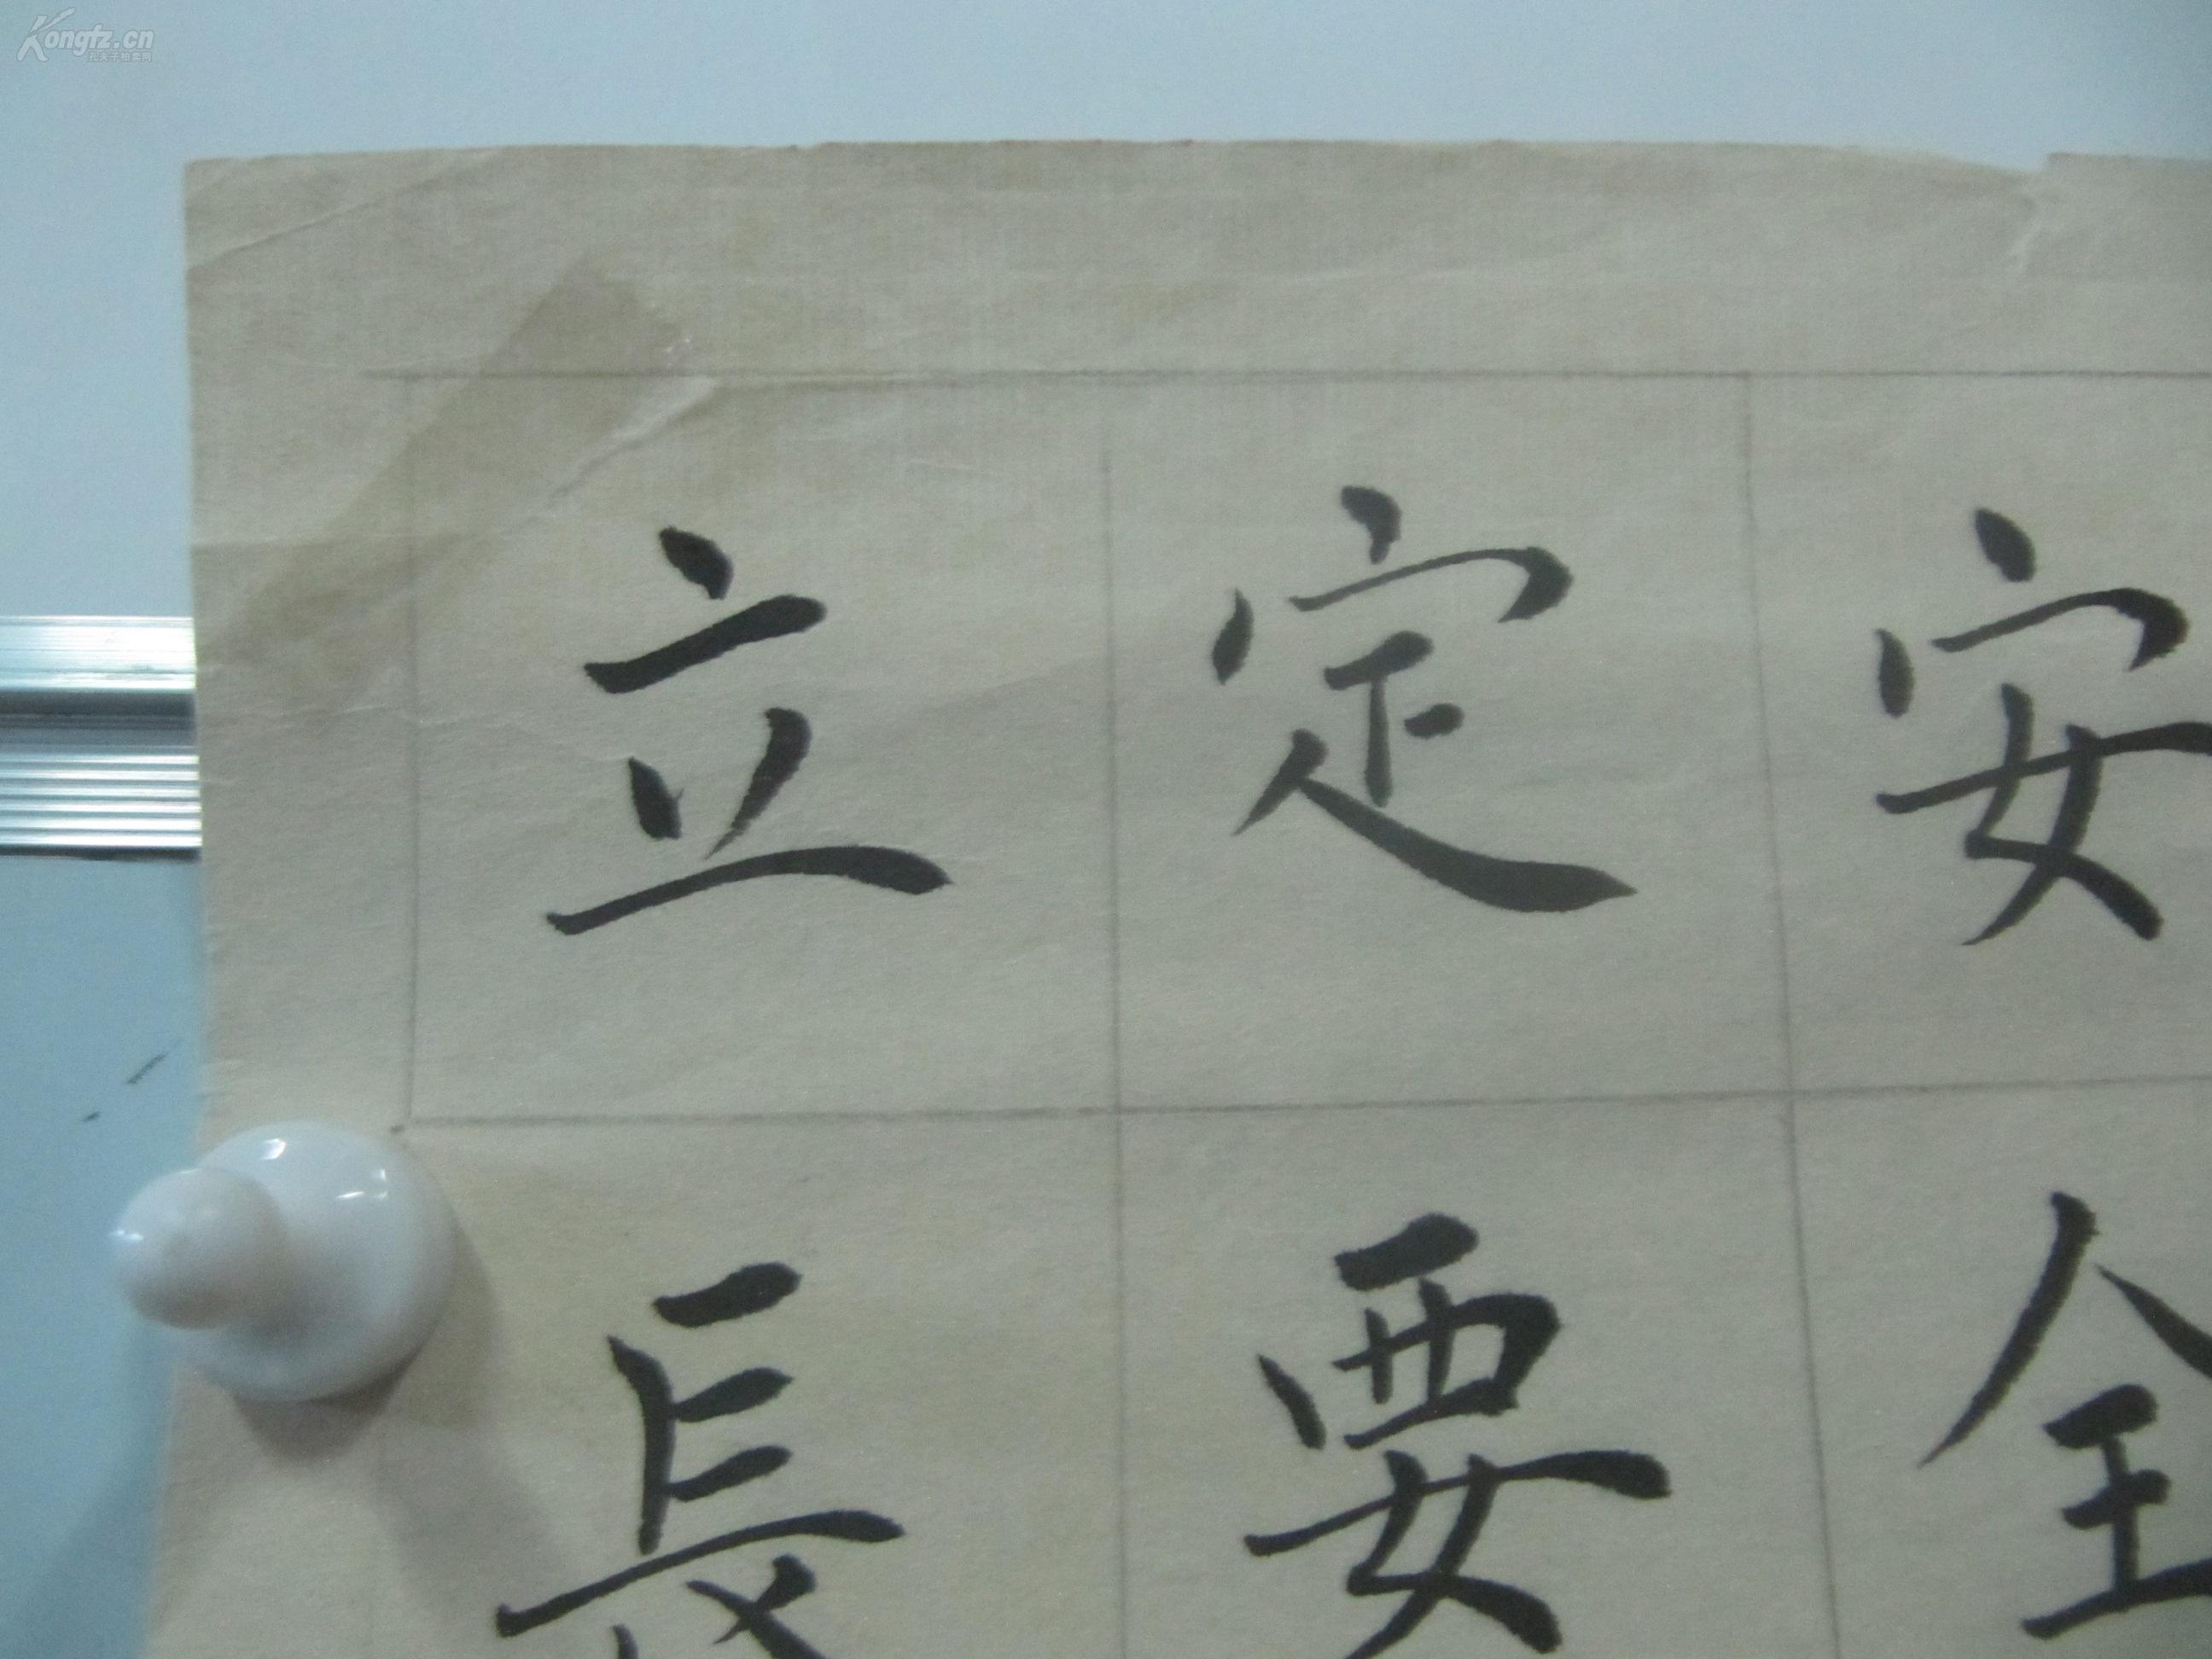 Kongfz.cn
孔夫子拍卖网
立定安
長要全